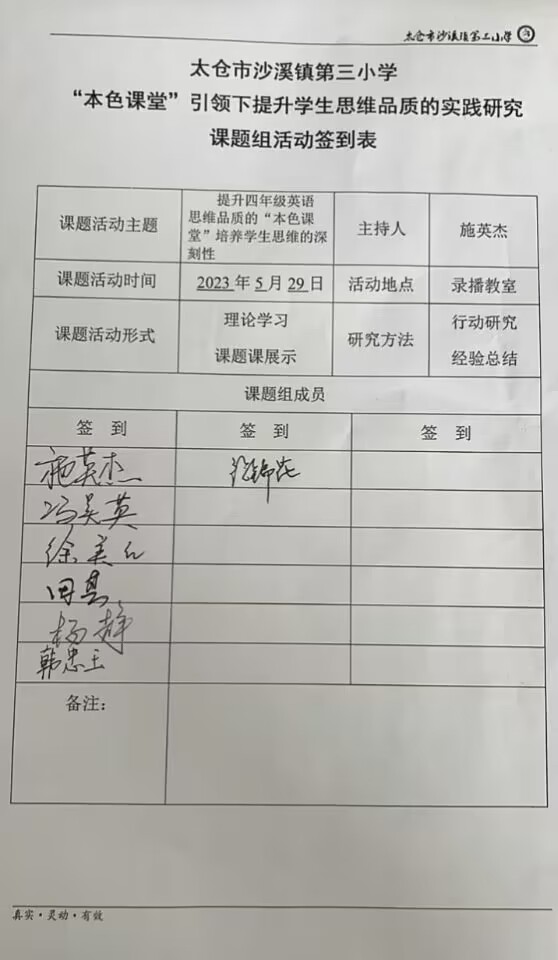 太仓市沙溪镇第三小学
太仓市沙溪镇第三小学
“本色课堂”引领下提升学生思维品质的实践研究
课题组活动签到表
课题活动主题
提升四年级英语
思维品质的“本色课
堂”培养学生思维的深
刻性
主持人
施英杰
课题活动时间
2023 年 5 月 29 日
活动地点
录播教室
课题活动形式
理论学习
课题课展示
研究方法
行动研究
经验总结
课题组成员
签 到
签 到
签 到
施英杰
冯吴英
徐美
田
杨静
韩忠玉
备注：
真实·灵动·有效